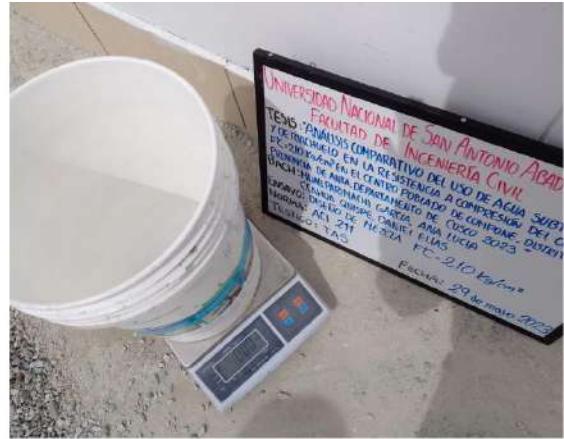 UNIVERSIDAD NACIONAL DE SAN ANTONIO ABAD
FACULTAD DE INGENIERÍA CIVIL
TESIS: "ANÁLISIS COMPARATIVO DEL USO DE AGUA SUBT
Y DE RIACHUELO EN LA RESISTENCIA A COMPRESIÓN DEL C
FC=210 Kg/cm² EN EL CENTRO POBLADO DE COMPONE, DISTRIT
PROVINCIA DE ANTA, DEPARTAMENTO DE CUSCO 2023"
BACH: HUALPARIMACHI GARCIA, ANA LUCIA
QUISPE, DANIEL ELIAS
ENSAYO: DISEÑO DE MEZCLA FC=210 Kg/cm²
NORMA: ACI 211
TESTIGO: TAS
FECHA: 29 de mayo 2023